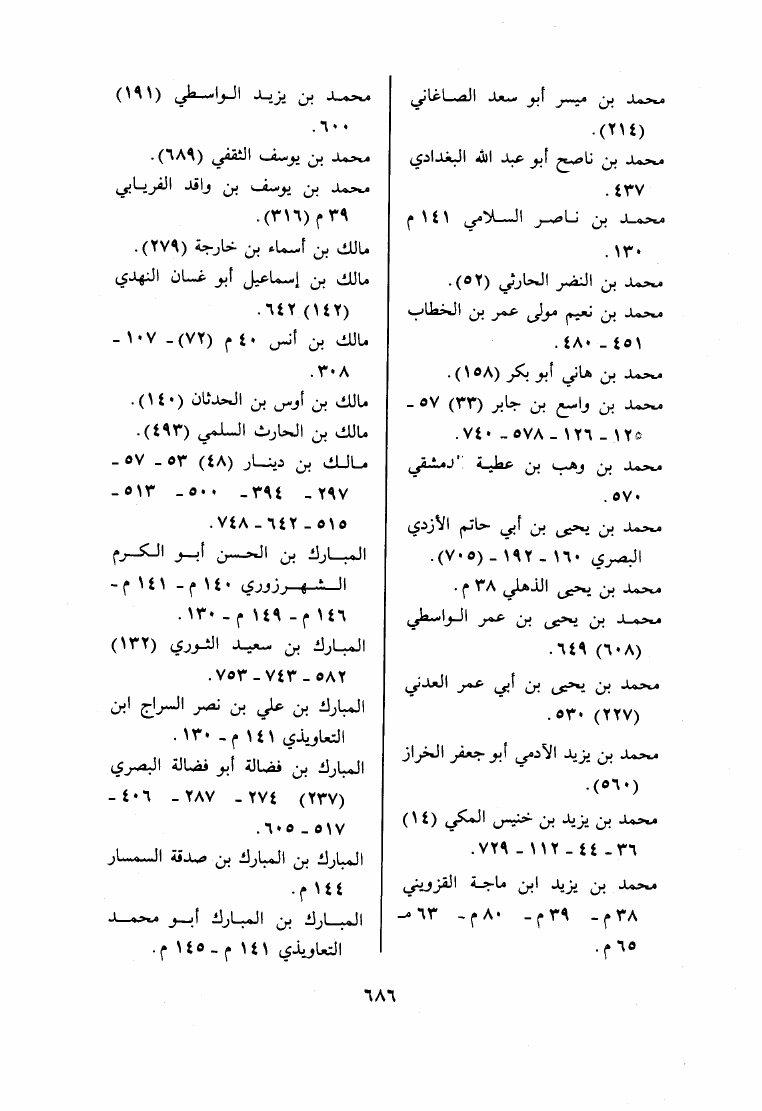 محمد بن ميسر أبو سعد الصاغاني
(٢١٤).
محمد بن ناصح أبو عبد الله البغدادي
٤٣٧.
محمد بن ناصر السلامي ١٤١ م
١٣٠.
محمد بن النضر الحارثي (٥٢).
محمد بن نعيم مولى عمر بن الخطاب
٤٥١ - ٤٨٠.
محمد بن هاني أبو بكر (١٥٨).
محمد بن واسع بن جابر (٣٣) ٥٧ -
١٢٥ - ١٢٦ - ٥٧٨ - ٧٤٠.
محمد بن وهب بن عطية الدمشقي
٥٧٠.
محمد بن يحيى بن أبي حاتم الأزدي
البصري ١٦٠ - ١٩٢ - (٧٠٥).
محمد بن يحيى الذهلي ٣٨ م.
محمد بن يحيى بن عمر الواسطي
(٦٠٨) ٦٤٩.
محمد بن يحيى بن أبي عمر العدني
(٢٢٧) ٥٣٠.
محمد بن يزيد الآدمي أبو جعفر الخراز
(٥٦٠).
محمد بن يزيد بن خنيس المكي (١٤)
٣٦ - ٤٤ - ١١٢ - ٧٢٩.
محمد بن يزيد ابن ماجة القزويني
٣٨ م - ٣٩ م - ٨٠ م - ٦٣ م -
٦٥ م.
محمد بن يزيد الواسطي (١٩١)
٦٠٠.
محمد بن يوسف الثقفي (٦٨٩).
محمد بن يوسف بن واقد الفريابي
٣٩ م (٣١٦).
مالك بن أسماء بن خارجة (٢٧٩).
مالك بن إسماعيل أبو غسان النهدي
(١٤٢) ٦٤٢.
مالك بن أنس ٤٠ م (٧٢) - ١٠٧ -
٣٠٨.
مالك بن أوس بن الحدثان (١٤٠).
مالك بن الحارث السلمي (٤٩٣).
مالك بن دينار (٤٨) ٥٣ - ٥٧ -
٢٩٧ - ٣٩٤ - ٥٠٠ - ٥١٣ -
٥١٥ - ٦٤٢ - ٧٤٨.
المبارك بن الحسن أبو الكرم
الشهرزوري ١٤٠ م - ١٤١ م -
١٤٦ م - ١٤٩ م - ١٣٠.
المبارك بن سعيد الثوري (١٣٢)
٥٨٢ - ٧٤٣ - ٧٥٣.
المبارك بن علي بن نصر السراج ابن
التعاويذي ١٤١ م - ١٣٠.
المبارك بن فضالة أبو فضالة البصري
(٢٣٧) ٢٧٤ - ٢٨٧ - ٤٠٦ -
٥١٧ - ٦٠٥.
المبارك بن المبارك بن صدقة السمسار
١٤٤ م.
المبارك بن المبارك أبو محمد
التعاويذي ١٤١ م - ١٤٥ م.
٦٨٦